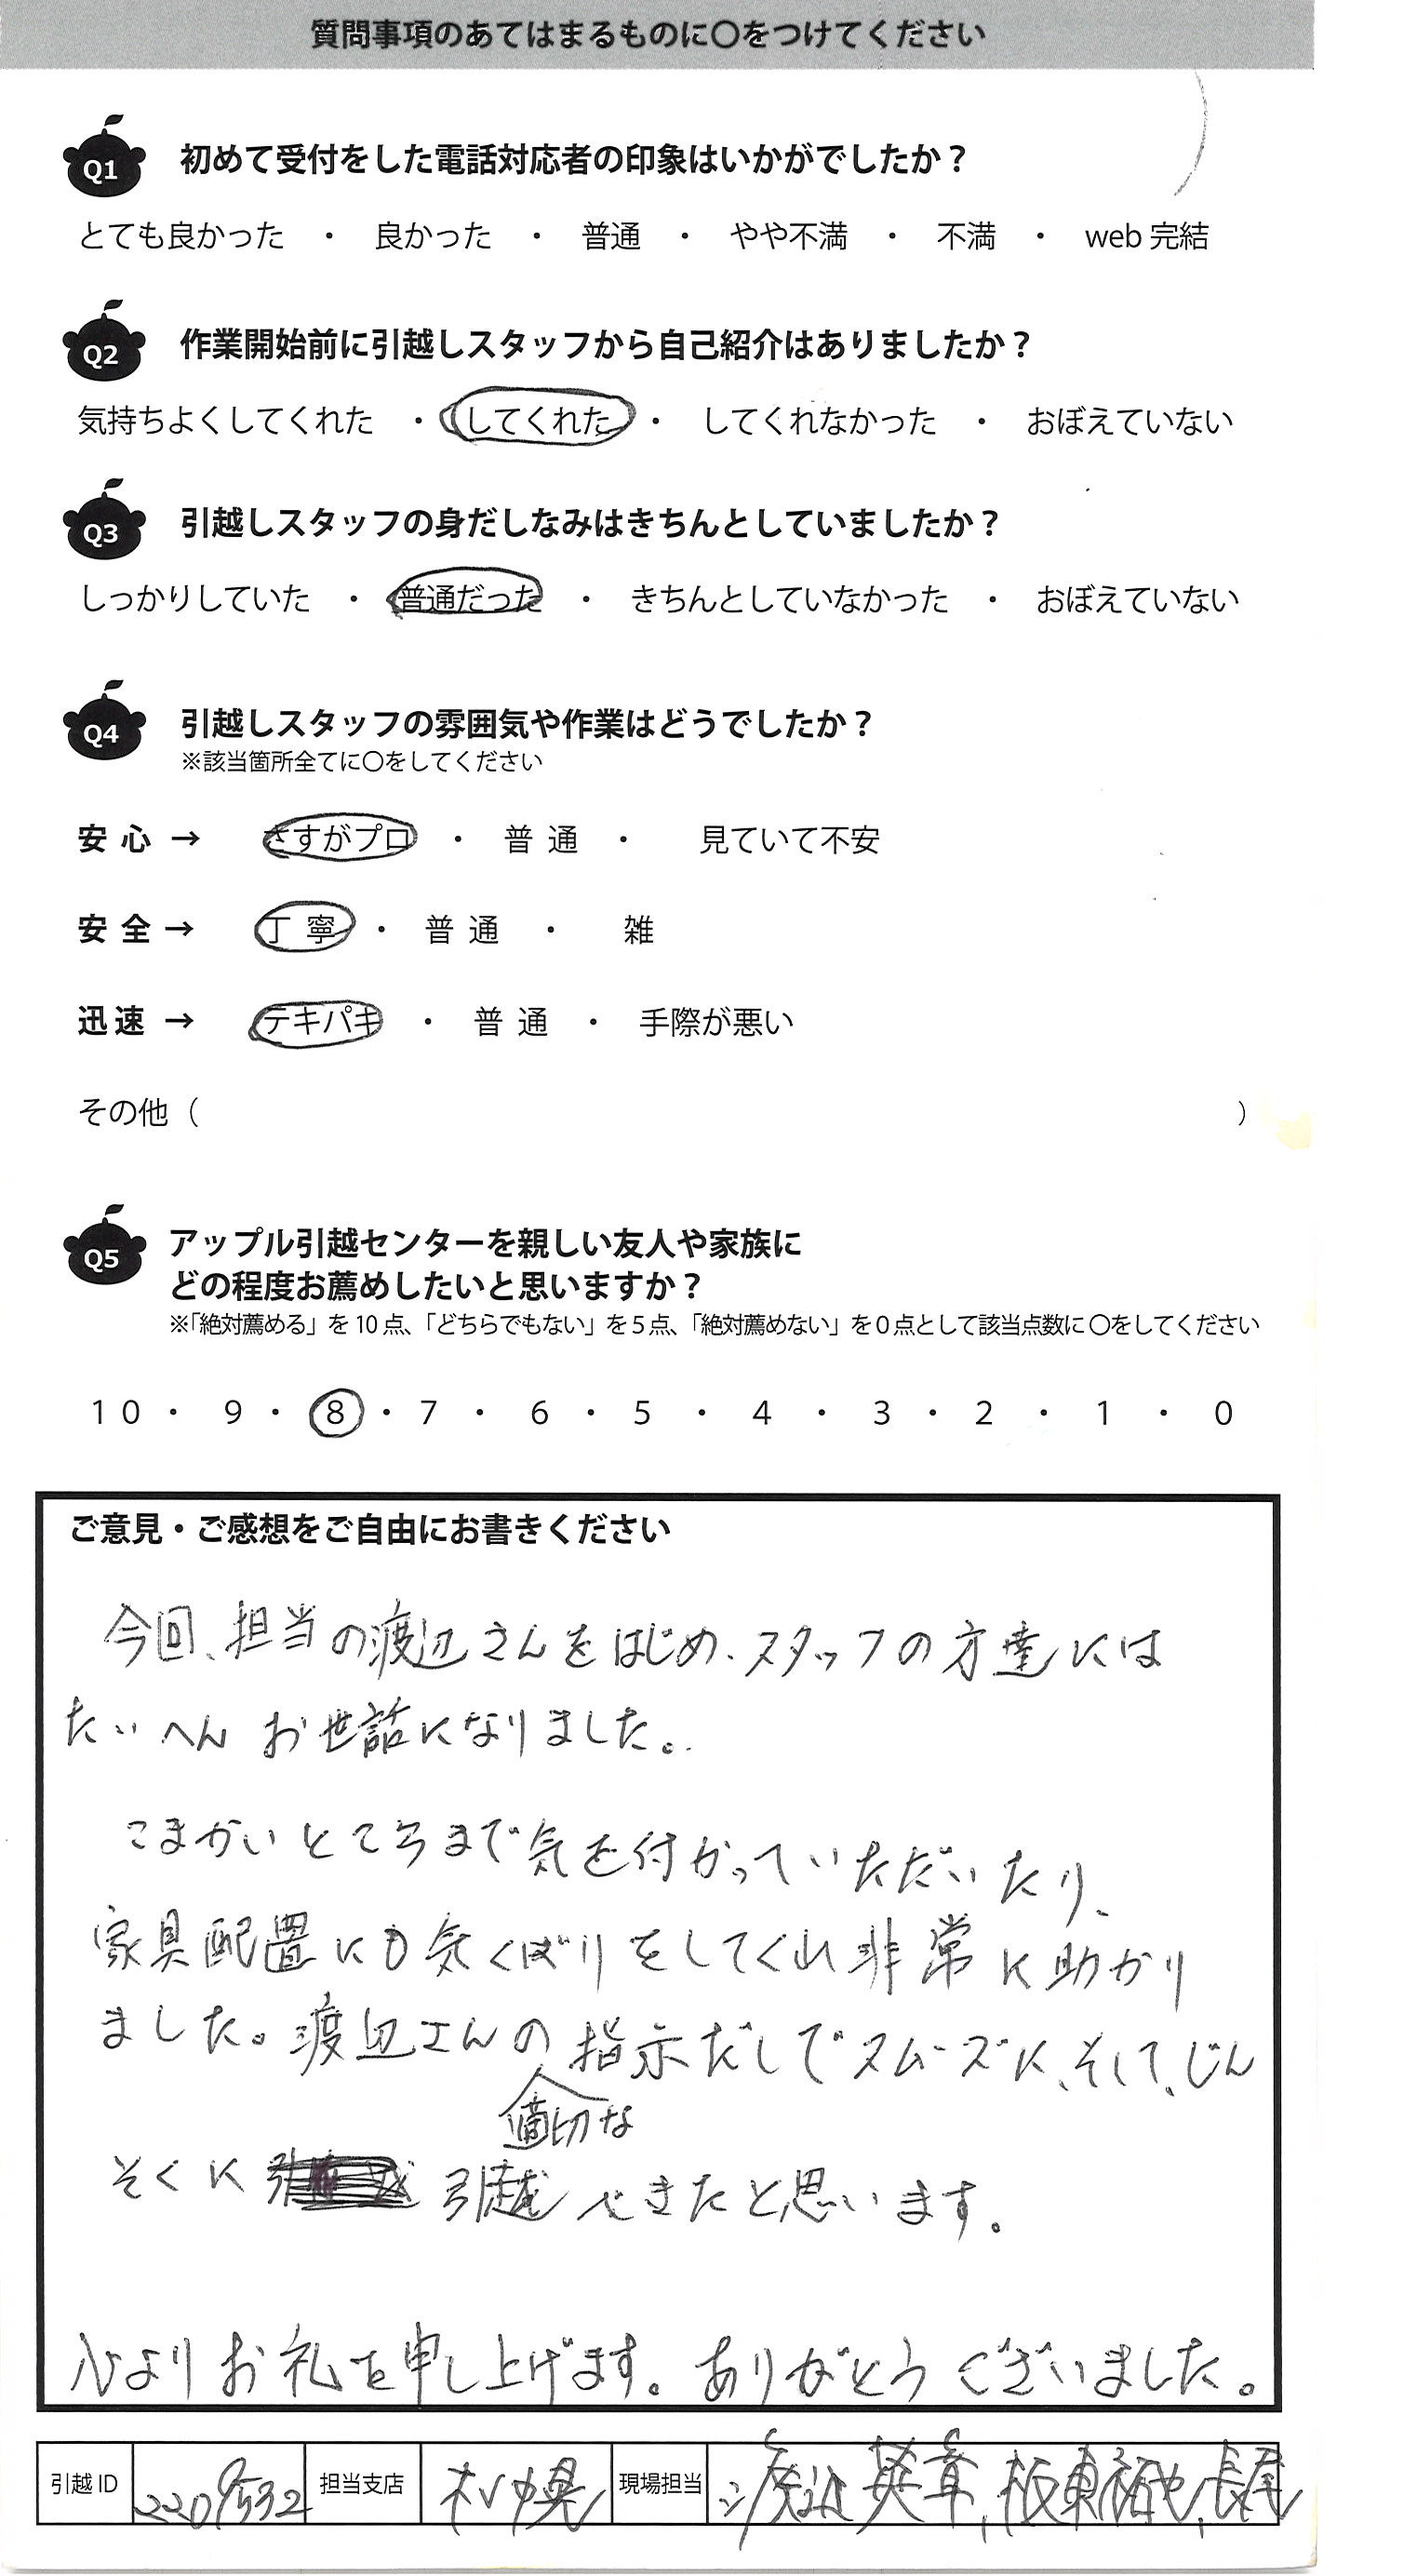 質問事項のあてはまるものに○をつけてください
Q1 初めて受付をした電話対応者の印象はいかがでしたか？
とても良かった ・ 良かった ・ 普通 ・ やや不満 ・ 不満 ・ web 完結
Q2 作業開始前に引越しスタッフから自己紹介はありましたか？
気持ちよくしてくれた ・ してくれた ・ してくれなかった ・ おぼえていない
Q3 引越しスタッフの身だしなみはきちんとしていましたか？
しっかりしていた ・ 普通だった ・ きちんとしていなかった ・ おぼえていない
Q4 引越しスタッフの雰囲気や作業はどうでしたか？
※該当箇所全てに○をしてください
安心 → さすがプロ ・ 普通 ・ 見ていて不安
安全 → 丁寧 ・ 普通 ・ 雑
迅速 → テキパキ ・ 普通 ・ 手際が悪い
その他（ ）
Q5 アップル引越センターを親しい友人や家族に
どの程度お薦めしたいと思いますか？
※「絶対薦める」を10点、「どちらでもない」を5点、「絶対薦めない」を0点として該当点数に○をしてください
10 ・ 9 ・ 8 ・ 7 ・ 6 ・ 5 ・ 4 ・ 3 ・ 2 ・ 1 ・ 0
ご意見・ご感想をご自由にお書きください
今回、担当の渡辺さんをはじめ、スタッフの方達には
たいへんお世話になりました。
こまかいところまで気を付かっていただいたり、
家具配置にも気くばりをしてくれ非常に助かり
ました。渡辺さんの指示だしでスムーズに、そして、じん
適切な
そくに 引越できたと思います。
心よりお礼を申し上げます。ありがとうございました。
引越ID 2209532 担当支店 札幌 現場担当 渡辺 英章, 板東 , 長尾